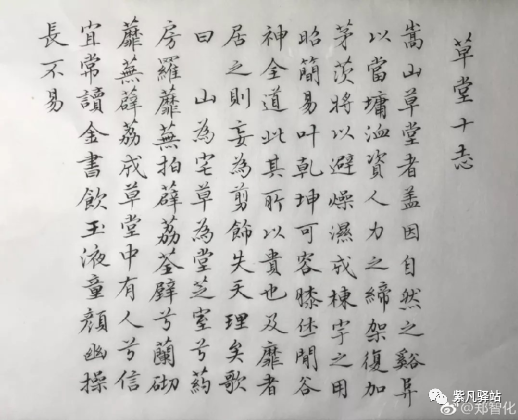 草堂十志
嵩山草堂者盖因自然之谿阜
以當墉洫資人力之締架復加
茅茨將以避燥濕成棟宇之用
昭簡易叶乾坤可容膝休閒谷
神全道此其所以貴也及靡者
居之則妄為剪飾失天理矣歌
曰 山為宅草為堂芝室兮葯
房羅蘼蕪拍薜荔荃壁兮蘭砌
蘼蕪薜荔成草堂中有人兮信
宜常讀金書飲玉液童顏幽操
長不易
紫凡驿站
@郑智化